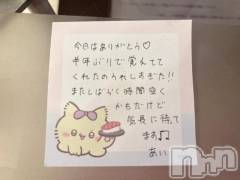 今日はありがとう♡
半年ぶりで覚えてて
くれたのうれしすぎた!!
またしばらく時間空く
かもだけど
気長に待て
ます♫
あい